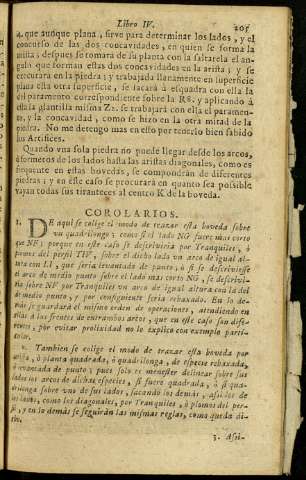 Libro IV. 205
4. que aunque plana, sirve para determinar los lados, y el
concurso de las dos concavidades, en quien se forma la
arista; despues se tomarà de su planta con la saltarela el an-
gulo que forman estas dos concavidades en la arista; y se
executarà en la piedra; y trabajada llanamente en superficie
plana esta otra superficie, se sacarà à esquadra con ella la
del paramento correspondiente sobre la RS. y aplicando à
ella la plantilla misma Zz. se trabajarà con ella el paramen-
to, y la concavidad, como se hizo en la otra mitad de la
piedra. No me detengo mas en esto por tenerlo bien sabido
los Artifices.
Quando una sola piedra no puede llegar desde los arcos,
ò formeros de los lados hasta las aristas diagonales, como es
frequente en estas bovedas, se compondràn de diferentes
piedras; y en este caso se procurarà en quanto sea possible
vayan todas sus tiranteces al centro K de la boveda.
COROLARIOS.
1. DE aqui se colige el modo de trazar esta boveda sobre
un quadrilongo; como si el lado NG fuere mas corto
que NF; porque en este caso se descriviria por Tranquiles, ò
plomos del perfil TIV, sobre el dicho lado un arco de igual al-
tura con LI, que seria levantado de punto; ò si se descriviesse
el arco de medio punto sobre el lado mas corto NG, se descrivi-
ria sobre NF por Tranquiles un arco de igual altura con la del
de medio punto, y por configuiente seria rebaxado. En lo de-
màs se guardarà el mismo orden de operaciones, atendiendo en
ellas à las frentes de entrambos arcos, que en este caso son dife-
rentes; por evitar prolixidad no lo explico con exemplo parti-
cular.
2. Tambien se colige el modo de trazar esta boveda por
arista, ò planta quadrada, ò quadrilonga, de especie rebaxada,
ò levantada de punto; pues solo es menester delinear sobre sus
lados los arcos de dichas especies, si fuere quadrada, ò si qua-
drilonga sobre uno de sus lados, sacando los demàs, assi los de
los lados, como los diagonales, por Tranquiles, ò plomos del per-
fil, y en lo demàs se seguiràn las mismas reglas, como queda di-
cho.
3. Assi-